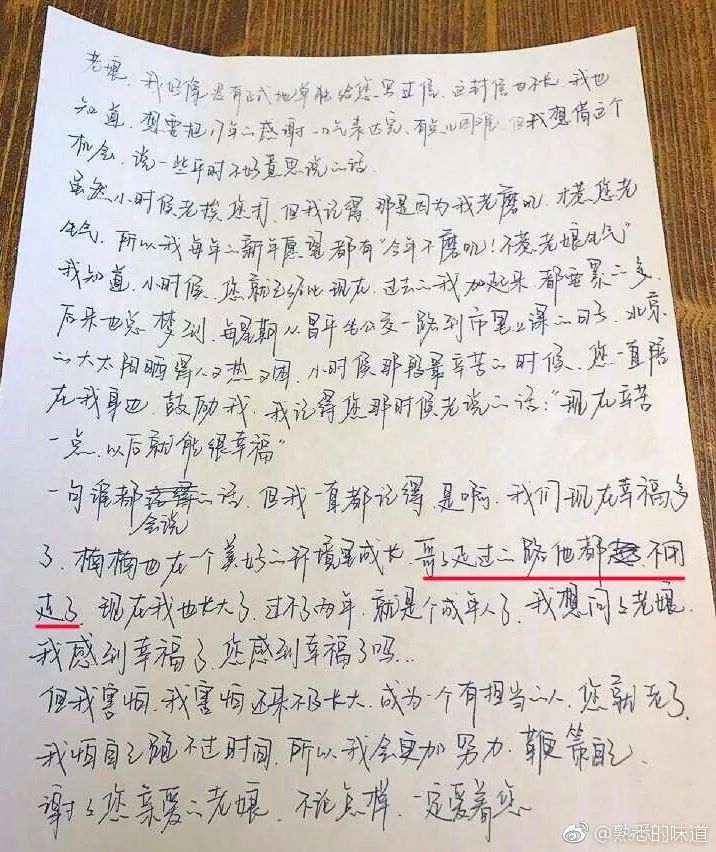 老娘，我好像没有正式地单独给您写过信，这封信也不长，我也
知道，想要把17年的感谢一口气表达完，有点儿困难，但我想借这个
机会，说一些平时不好意思说的话
虽然小时候老挨您打，但我记得，那是因为我老磨叽，才惹您老
生气，所以我每年的新年愿望都有“今年不磨叽！不惹老娘生气”
我知道，小时候，您就已经比现在，过去的我加起来，都要累的多，
后来也总梦到，每星期从昌平坐公交一路到市里上课的日子，北京
的大太阳晒得人又热又困，小时候那段最辛苦的时候，您一直陪
在我身边，鼓励我，我记得您那时候老说的话：“现在辛苦
一点，以后就能很幸福”
一句谁都会说的话，但我一直都记得，是啊，我们现在幸福多
了，楠楠也在一个美好的环境里成长，哥哥走过的路他都不用
走了，现在我也长大了，过不了两年，就是个成年人了，我想问问老娘，
我感到幸福了，您感到幸福了吗...
但我害怕，我害怕还来不及长大，成为一个有担当的人，您就老了，
我怕自己跑不过时间，所以我会更加努力，鞭策自己
谢谢您亲爱的老娘，不论怎样，一定爱着您
@熟悉的味道